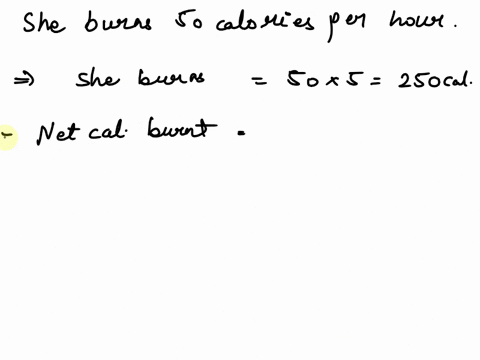 She burns 50 calories per hour.
⇒ She burns = 50 × 5 = 250 cal.
- Net cal. burnt